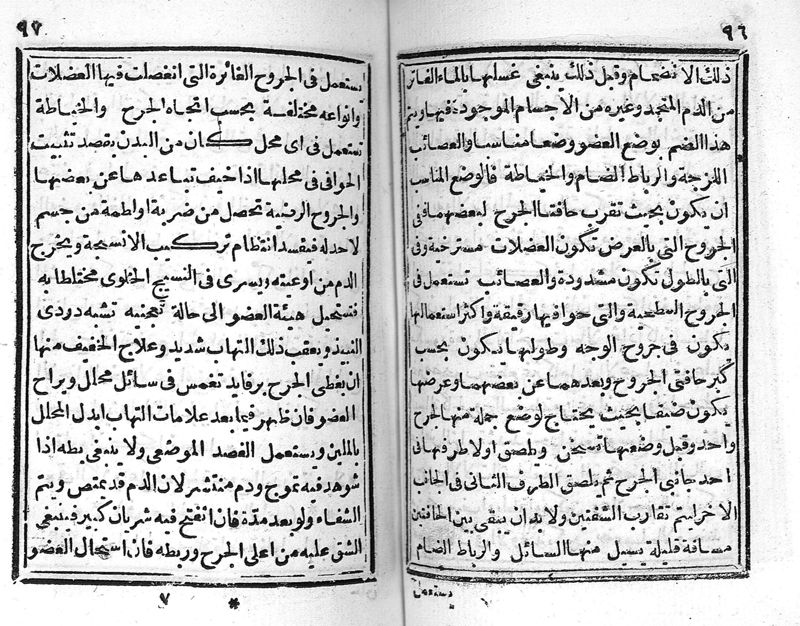 ٩٦
ذلك الانضمام وقبل ذلك ينبغى غسلها بالماء الفاتر
من الدم المتجمد وغيره من الاجسام الموجودة فيها ويتم
هذا الضم بوضع العضو وضعا مناسبا والعصائب
اللزجة والرباط الضام والخياطة فالوضع المناسب
ان يكون بحيث تقرب حافتا الجرح لبعضهما ففى
الجروح التى بالعرض تكون العضلات مسترخية وفى
التى بالطول تكون مشدودة والعصائب تستعمل فى
الجروح السطحية والتى حوافيها رقيقة واكثر استعمالها
يكون فى جروح الوجه وطولها يكون بحسب
كبر حافتى الجروح وبعدهما عن بعضهما وعرضها
يكون ضيقا بحيث يحتاج لوضع جملة منها لجرح
واحد وقبل وضعها تسخن ويلصق اولا طرفها فى
احد جانبى الجرح ثم يلصق الطرف الثانى فى الجانب
الاخر ليتم تقارب الشفتين ولا بد ان يبقى بين الحافتين
مسافة قليلة يسيل منها السائل والرباط الضام
يستعمل
٩٧
يستعمل فى الجروح الغائرة التى انفصلت فيها العضلات
وانواعه مختلفة بحسب اتجاه الجرح والخياطة
تستعمل فى اى محل كان من البدن بقصد تثبيت
الحوافى فى محلها اذا خيف تباعدها عن بعضها
والجروح الرضية تحصل من ضربة او لطمة من جسم
لاحد له فيفسد انتظام تركيب الانسجة ويخرج
الدم من اوعيته ويسرى فى النسيج الخلوى مختلطا به
فتستحيل هيئة العضو الى حالة عجينيه تشبه دردى
النبيذ ويعقب ذلك التهاب شديد وعلاج الخفيف منها
ان يغطى الجرح برفايد تغمس فى سائل محلل ويراح
العضو فان ظهر فيما بعد علامات التهاب ابدل المحلل
بالملين ويستعمل الفصد الموضعى ولا ينبغى بطه اذا
شوهد فيه تموج ودم منتشر لان الدم قد يمتص ويتم
الشفاء ولو بعد مدة فان انفتح فيه شريان كبير فينبغى
الشق عليه من اعلى الجرح وربطه فان استحال العضو
٧ *